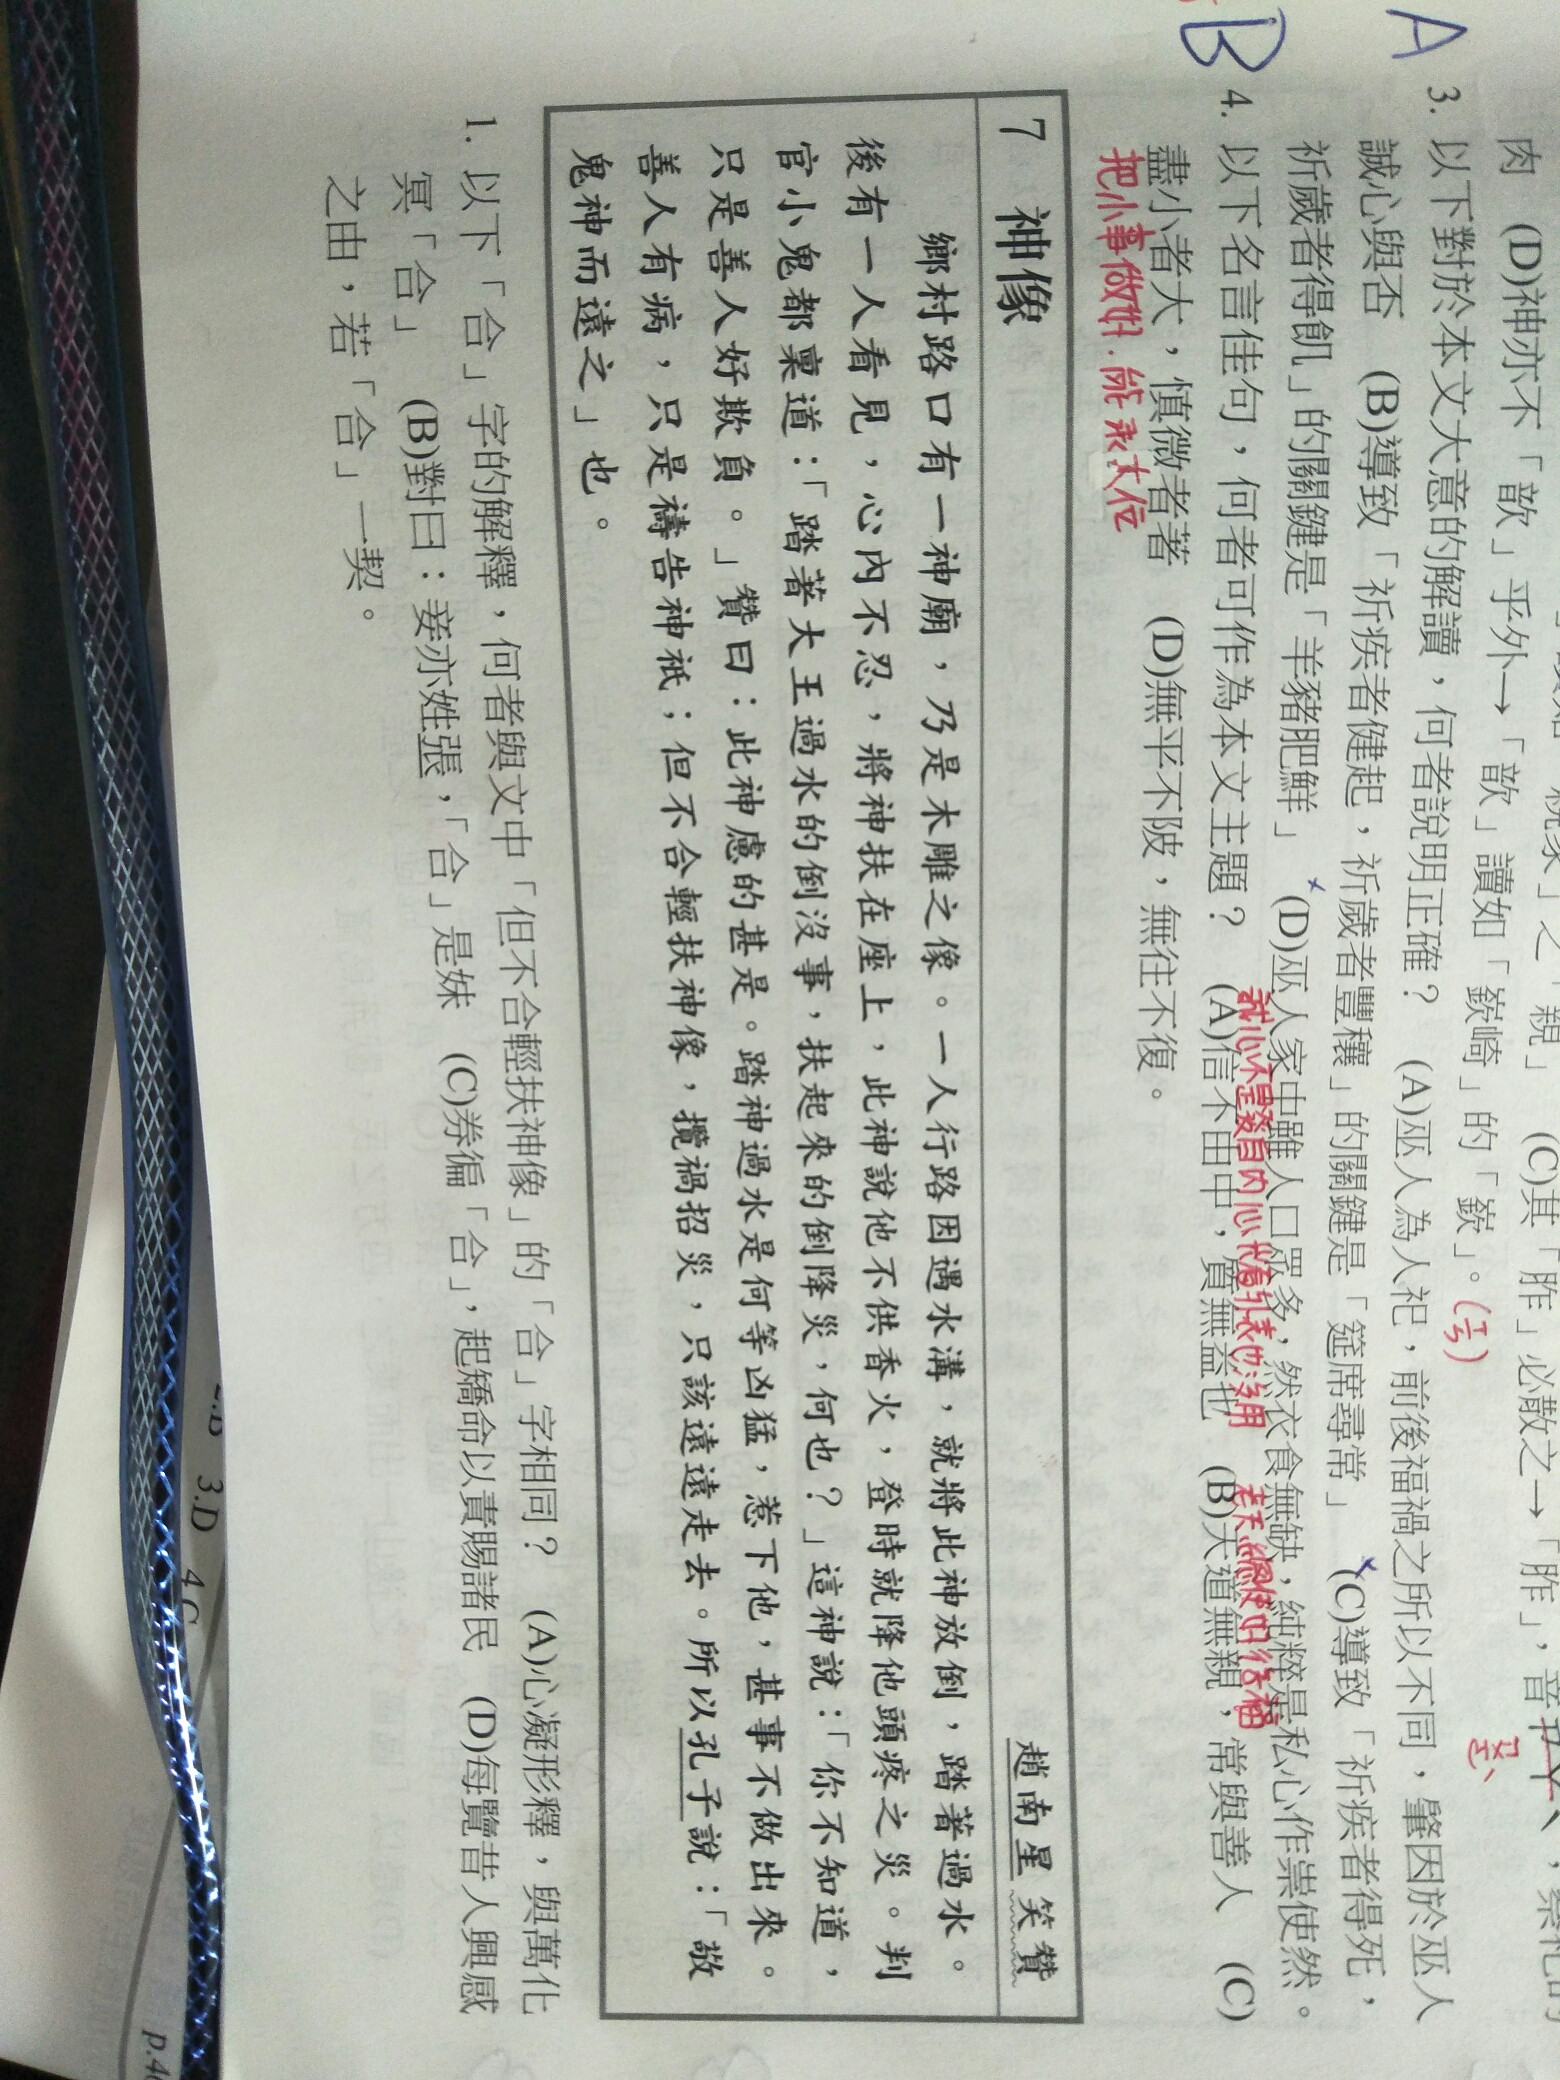 肉　(D)神亦不「歆」乎外→「歆」讀如「嶔崎」的「嶔」。
(ㄒㄧㄣ)
A
3. 以下對於本文大意的解讀，何者說明正確？　(A)巫人為人祀，前後福禍之所以不同，肇因於巫人
誠心與否　(B)導致「祈疾者健起，祈歲者豐穰」的關鍵是「筵席尋常」　(C)導致「祈疾者得死，
祈歲者得飢」的關鍵是「羊豬肥鮮」　(D)巫人家中雖人口眾多，然衣食無缺，純粹是私心作祟使然。
誠心不是發自內心 光有外表也沒用
B
4. 以下名言佳句，何者可作為本文主題？　(A)信不由中，質無益也　(B)天道無親，常與善人　(C)
盡小者大，慎微者著　(D)無平不陂，無往不復。
把小事做好.能永大位
7　神像　趙南星 笑贊
鄉村路口有一神廟，乃是木雕之像。一人行路因遇水溝，就將此神放倒，踏著過水。
後有一人看見，心內不忍，將神扶在座上，此神說他不供香火，登時就降他頭疼之災。判
官小鬼都稟道：「踏著大王過水的倒沒事，扶起來的倒降災，何也？」這神說：「你不知道，
只是善人好欺負。」贊曰：此神慮的甚是。踏神過水是何等凶猛，惹下他，甚事不做出來。
善人有病，只是禱告神祇；但不合輕扶神像，攬禍招災，只該遠遠走去。所以孔子說：「敬
鬼神而遠之」也。
1. 以下「合」字的解釋，何者與文中「但不合輕扶神像」的「合」字相同？　(A)心凝形釋，與萬化
冥「合」　(B)對曰：妾亦姓張，「合」是妹　(C)券徧「合」，起矯命以責賜諸民　(D)每覽昔人興感
之由，若「合」一契。
3.D
4.C